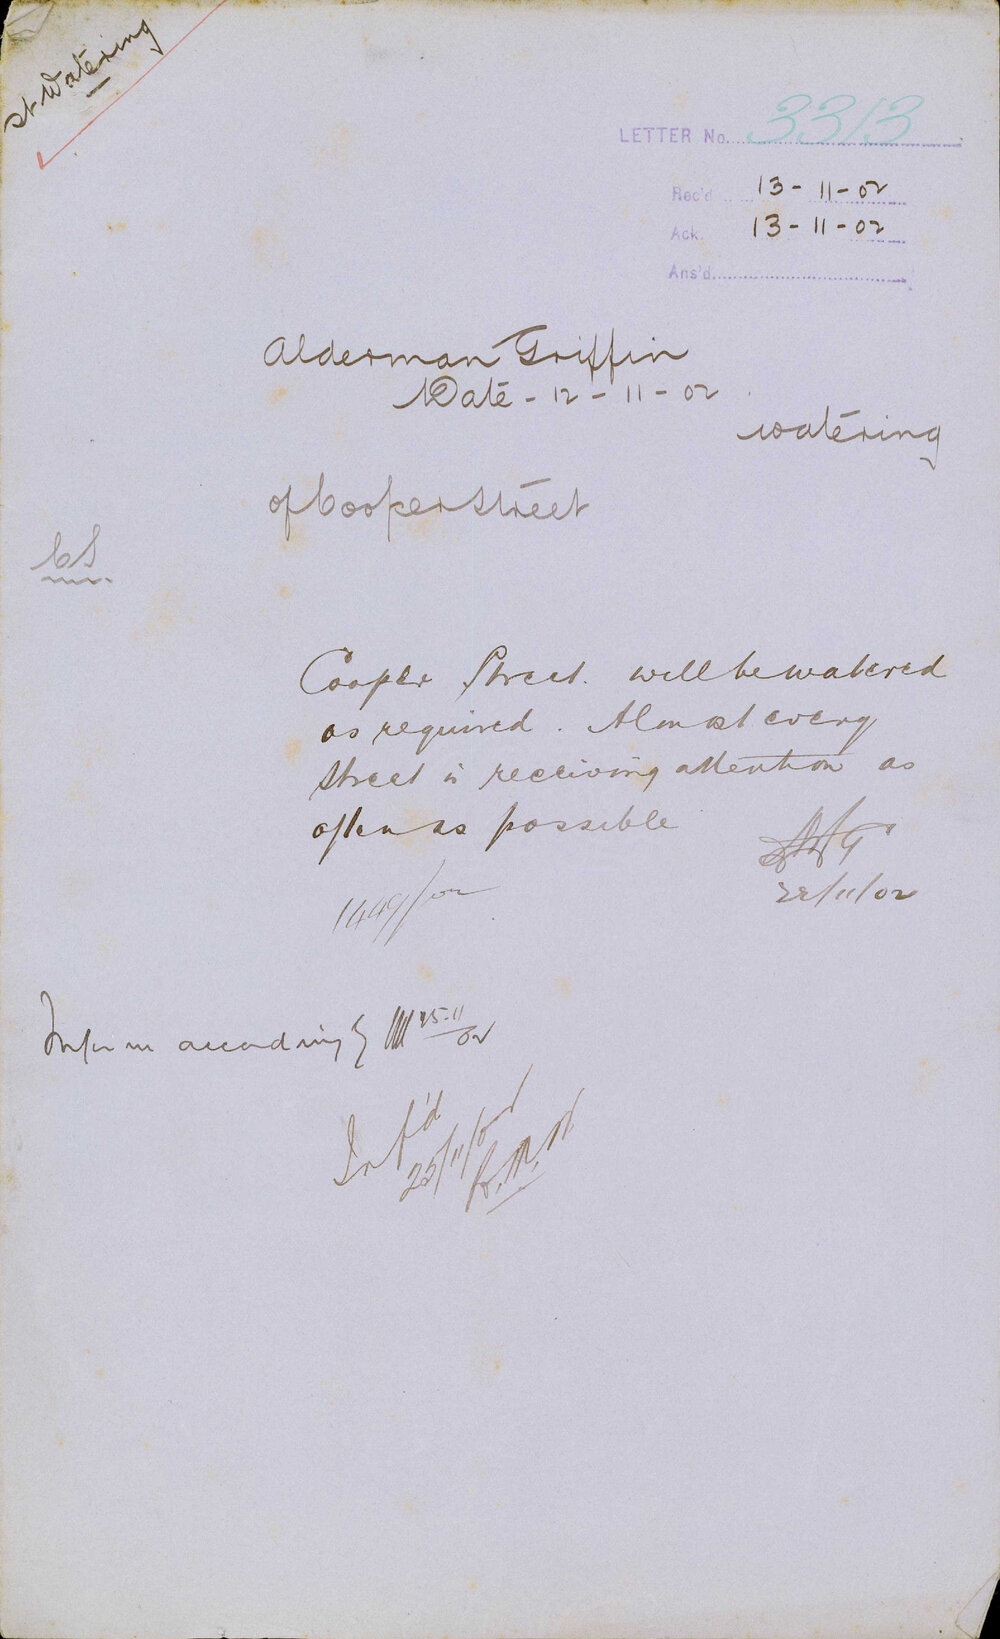 St Watering
LETTER No. 3313
Rec'd 13-11-02
Ack. 13-11-02
Ans'd
Alderman Griffin
Date - 12-11-02
watering
of Cooper Street
CS
Cooper Street. will be watered
as required. Almost every
street is receiving attention as
often as possible
22/11/02
1449/02
Inform accordingly 25-11/02
Inf'd
25/11/02